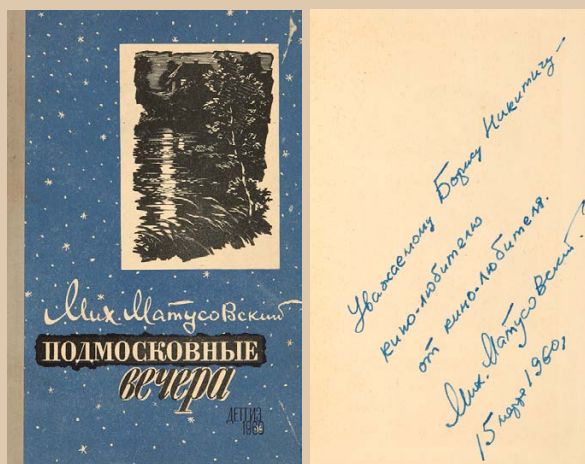 Мих. Матусовский
ПОДМОСКОВНЫЕ
вечера
ДЕТГИЗ
1960
Уважаемому Борису Никитичу —
кино-любителю
от кино-любителя.
Мих. Матусовский.
15 1960,